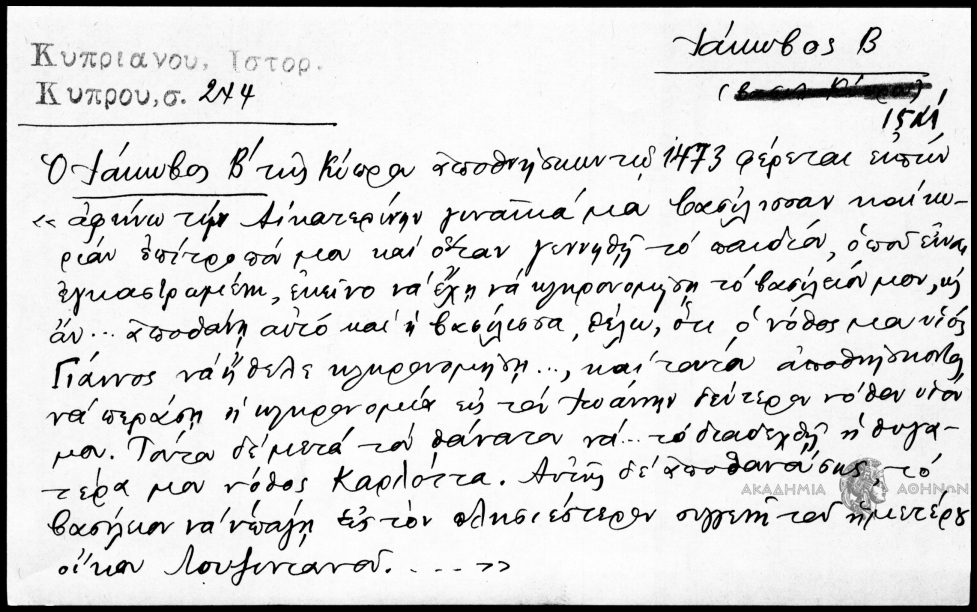 Ἰάκωβος Β
Κυπριανου, Ιστορ.
Κυπρου, σ. 274
15
Ὁ Ἰάκωβος Β' τῆς Κύπρου ἀποθνήσκων τῷ 1473 φέρεται εἰπών
« ἀφήνω τὴν Αἰκατερίνην γυναῖκά μου βασίλισσαν καὶ κυ-
ρίαν ἐπίτροπά μου καὶ ὅταν γεννηθῇ τὸ παιδίον, ὁποῦ εἶναι
ἐγκαστρωμένη, ἐκεῖνο νὰ ἔχῃ νὰ κληρονομήσῃ τὸ βασίλειόν μου, εἰς
ἄν... ἀποθάνῃ αὐτὸ καὶ ἡ βασίλισσα, θέλω, ὅτι ὁ νόθος μου υἱὸς
Γιάννος νὰ ἤθελε κληρονομήσῃ..., καὶ τοῦτο ἀποθνήσκοντας
νὰ περάσῃ ἡ κληρονομία εἰς τὸν Ἰωάννην δεύτερον νόθον υἱόν
μου. Τοῦτο δὲ μετὰ τὸν θάνατον νὰ... τὸ διαδεχθῇ ἡ θυγα-
τέρα μου νόθος Καρλόττα. Αὐτῆς δὲ ἀποθανούσης, τὸ
βασίλειον νὰ ὑπάγῃ εἰς τὸν πλησιέστερον συγγενῆ τοῦ ἡμετέρου
οἴκου Λουζινιανοῦ. .... »
ΑΚΑΔΗΜΙΑ ΑΘΗΝΩΝ